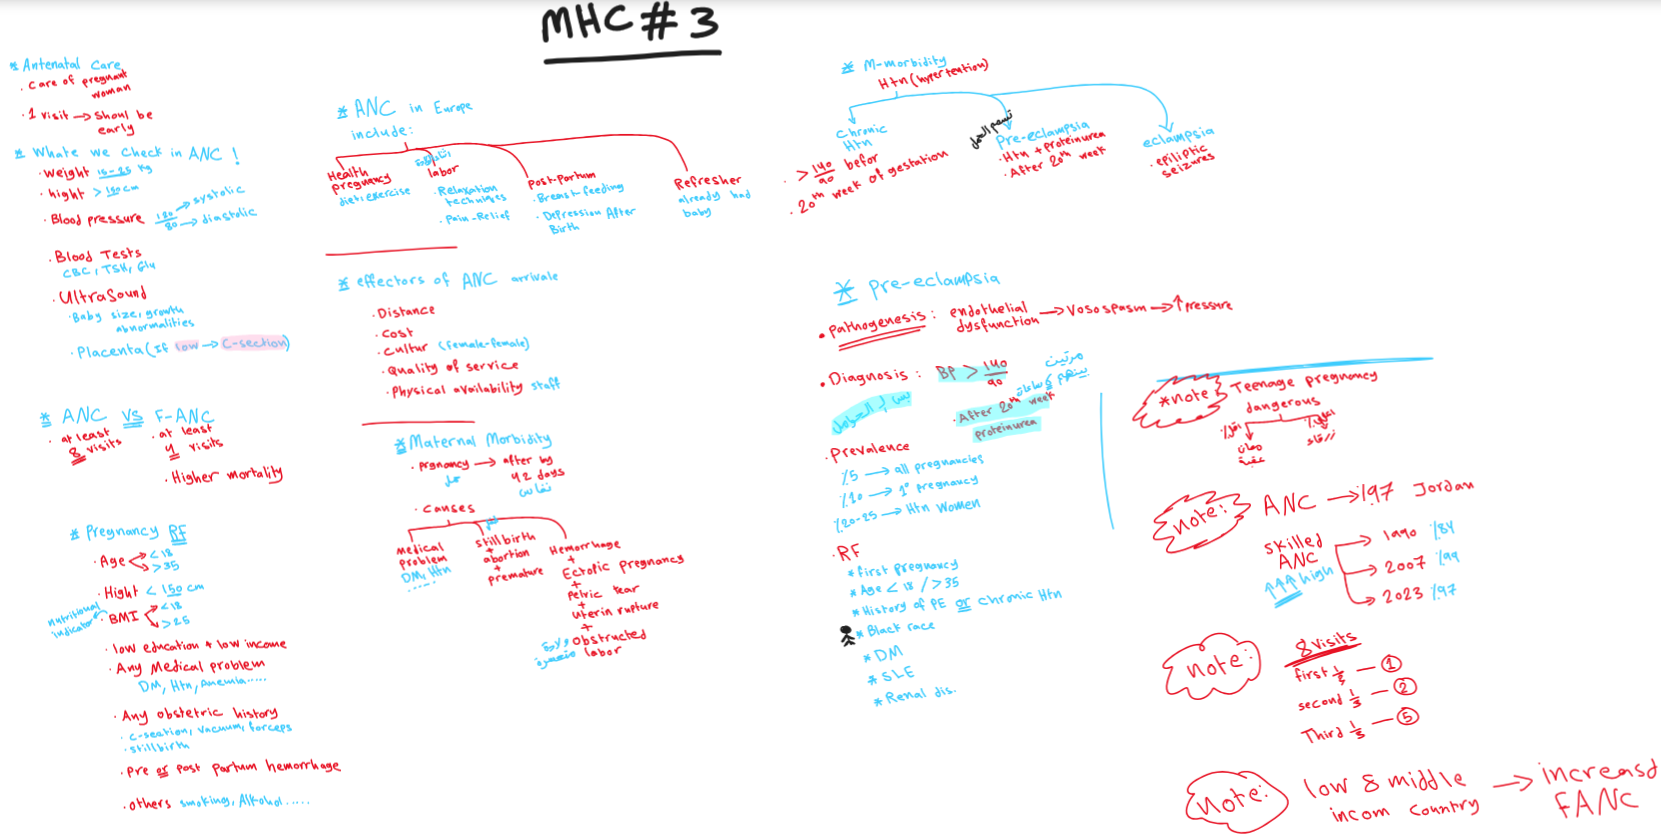 MHC # 3
* Antenatal Care
. care of pregnant
woman
. 1 visit → Shoul be
early
* Whate we check in ANC !
. weight 15-25 kg
. hight > 150 cm
. Blood pressure 120/80 → systolic
→ diastolic
. Blood Tests
CBC, TSH, Glu
. UltraSound
. Baby size, growth
abnormalities
. Placenta (if low → C-section)
* ANC VS F-ANC
. at least
8 visits
. at least
4 visits
. Higher mortality
* Pregnancy RF
. Age < 18
> 35
. Hight < 150 cm
nutritional
indicator
. BMI < 18
> 25
. low education + low income
. Any Medical problem
DM, Htn, Anemia.....
. Any obstetric history
. c-section, vacuum, forceps
. stillbirth
. Pre or post partum hemorrhage
. others smoking, Alkohol.....
* ANC in Europe
include:
Health
pregnancy
diet, exercise
labor
. Relaxation
techniques
. Pain-Relief
Post-Partum
. Breast-feeding
. Depression After
Birth
Refresher
already had
baby
* effectors of ANC arrivale
. Distance
. Cost
. Cultur (female-female)
. Quality of service
. Physical availability staff
* Maternal Morbidity
. prgnancy → after by
42 days
حمل
نفاس
. causes
Medical
problem
DM, Htn
.....
Stillbirth
+
abortion
+
premature
Hemorrhage
+
Ectofic pregnancy
+
Pelvic tear
+
Uterin rupture
+
Obstructed
labor
ولادة
متعسرة
* M-morbidity
Htn (hypertention)
Chronic
Htn
. > 140/90 befor
. 20th week of gestation
تسمم الحمل
Pre-eclampsia
. Htn + proteinurea
. After 20th week
eclampsia
. epiliptic
seizures
* Pre-eclampsia
. pathogenesis : endothelial
dysfunction → Vosospasm → ↑ pressure
. Diagnosis : BP > 140/90
مرتين
. After 20th week
proteinurea
. Prevalence
%5 → all pregnancies
%10 → 1° pregnancy
%20-25 → Htn Women
. RF
* First pregnancy
* Age < 18 / > 35
* History of PE or chronic Htn
* Black race
* DM
* SLE
* Renal dis.
*note Teenage pregnancy
dangerous
note: ANC → %97 Jordan
skilled
ANC
↑↑↑ high
→ 1990 %84
→ 2007 %99
→ 2023 %97
note: 8 Visits
first 1/3 — 1
second 1/3 — 2
Third 1/3 — 5
note: low & middle
incom country → increasd
FANC